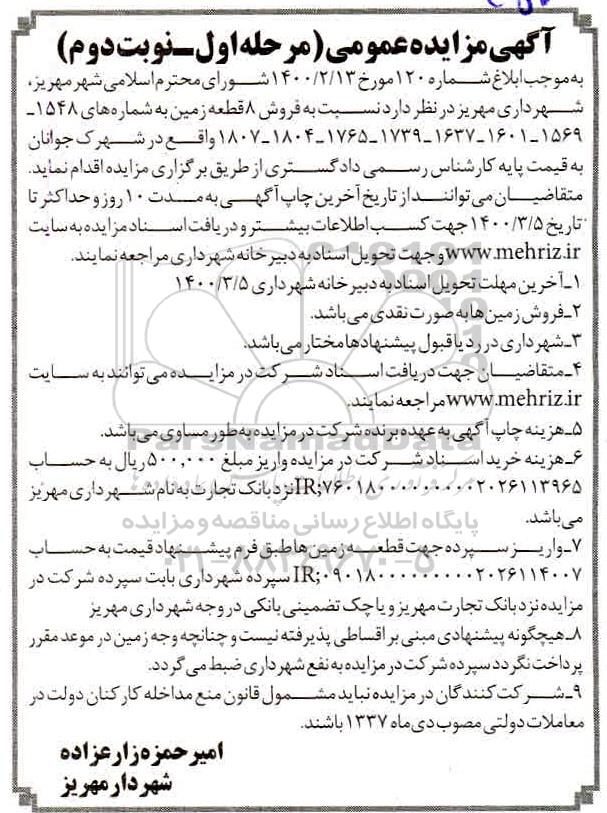 آگهی مزایده عمومی (مرحله اول - نوبت دوم)
به موجب ابلاغ شماره ۱۲۰ مورخ ۱۴۰۰/۲/۱۳ شورای محترم اسلامی شهر مهریز،
شهرداری مهریز در نظر دارد نسبت به فروش ۸ قطعه زمین به شماره های ۱۵۴۸-
۱۵۶۹-۱۶۰۱-۱۶۳۷-۱۷۳۹-۱۷۶۵-۱۸۰۴-۱۸۰۷ واقع در شهرک جوانان
به قیمت پایه کارشناس رسمی دادگستری از طریق برگزاری مزایده اقدام نماید.
متقاضیان می توانند از تاریخ آخرین چاپ آگهی به مدت ۱۰ روز و حداکثر تا
تاریخ ۱۴۰۰/۳/۵ جهت کسب اطلاعات بیشتر و دریافت اسناد مزایده به سایت
www.mehriz.ir و جهت تحویل اسناد به دبیرخانه شهرداری مراجعه نمایند.
۱- آخرین مهلت تحویل اسناد به دبیرخانه شهرداری ۱۴۰۰/۳/۵
۲- فروش زمین ها به صورت نقدی می باشد.
۳- شهرداری در رد یا قبول پیشنهادها مختار می باشد.
۴- متقاضیان جهت دریافت اسناد شرکت در مزایده می توانند به سایت
www.mehriz.ir مراجعه نمایند.
۵- هزینه چاپ آگهی به عهده برنده شرکت در مزایده به طور مساوی می باشد.
۶- هزینه خرید اسناد شرکت در مزایده واریز مبلغ ۵۰۰,۰۰۰ ریال به حساب
IR;۷۶۰۱۸۰۰۰۰۰۰۰۰۰۰۲۰۲۶۱۱۳۹۶۵ نزد بانک تجارت به نام شهرداری مهریز
می باشد.
۷- واریز سپرده جهت قطعه زمین ها طبق فرم پیشنهاد قیمت به حساب
IR;۰۹۰۱۸۰۰۰۰۰۰۰۰۰۰۲۰۲۶۱۱۴۰۰۷ سپرده شهرداری بابت سپرده شرکت در
مزایده نزد بانک تجارت مهریز و یا چک تضمینی بانکی در وجه شهرداری مهریز
۸- هیچگونه پیشنهادی مبنی بر اقساطی پذیرفته نیست و چنانچه وجه زمین در موعد مقرر
پرداخت نگردد سپرده شرکت در مزایده به نفع شهرداری ضبط می گردد.
۹- شرکت کنندگان در مزایده نباید مشمول قانون منع مداخله کارکنان دولت در
معاملات دولتی مصوب دی ماه ۱۳۳۷ باشند.
امیر حمزه زارعزاده
شهردار مهریز
ParsNamadData
پایگاه اطلاع رسانی مناقصه و مزایده
۰۲۱-۸۸۳۴۹۶۷۰-۵